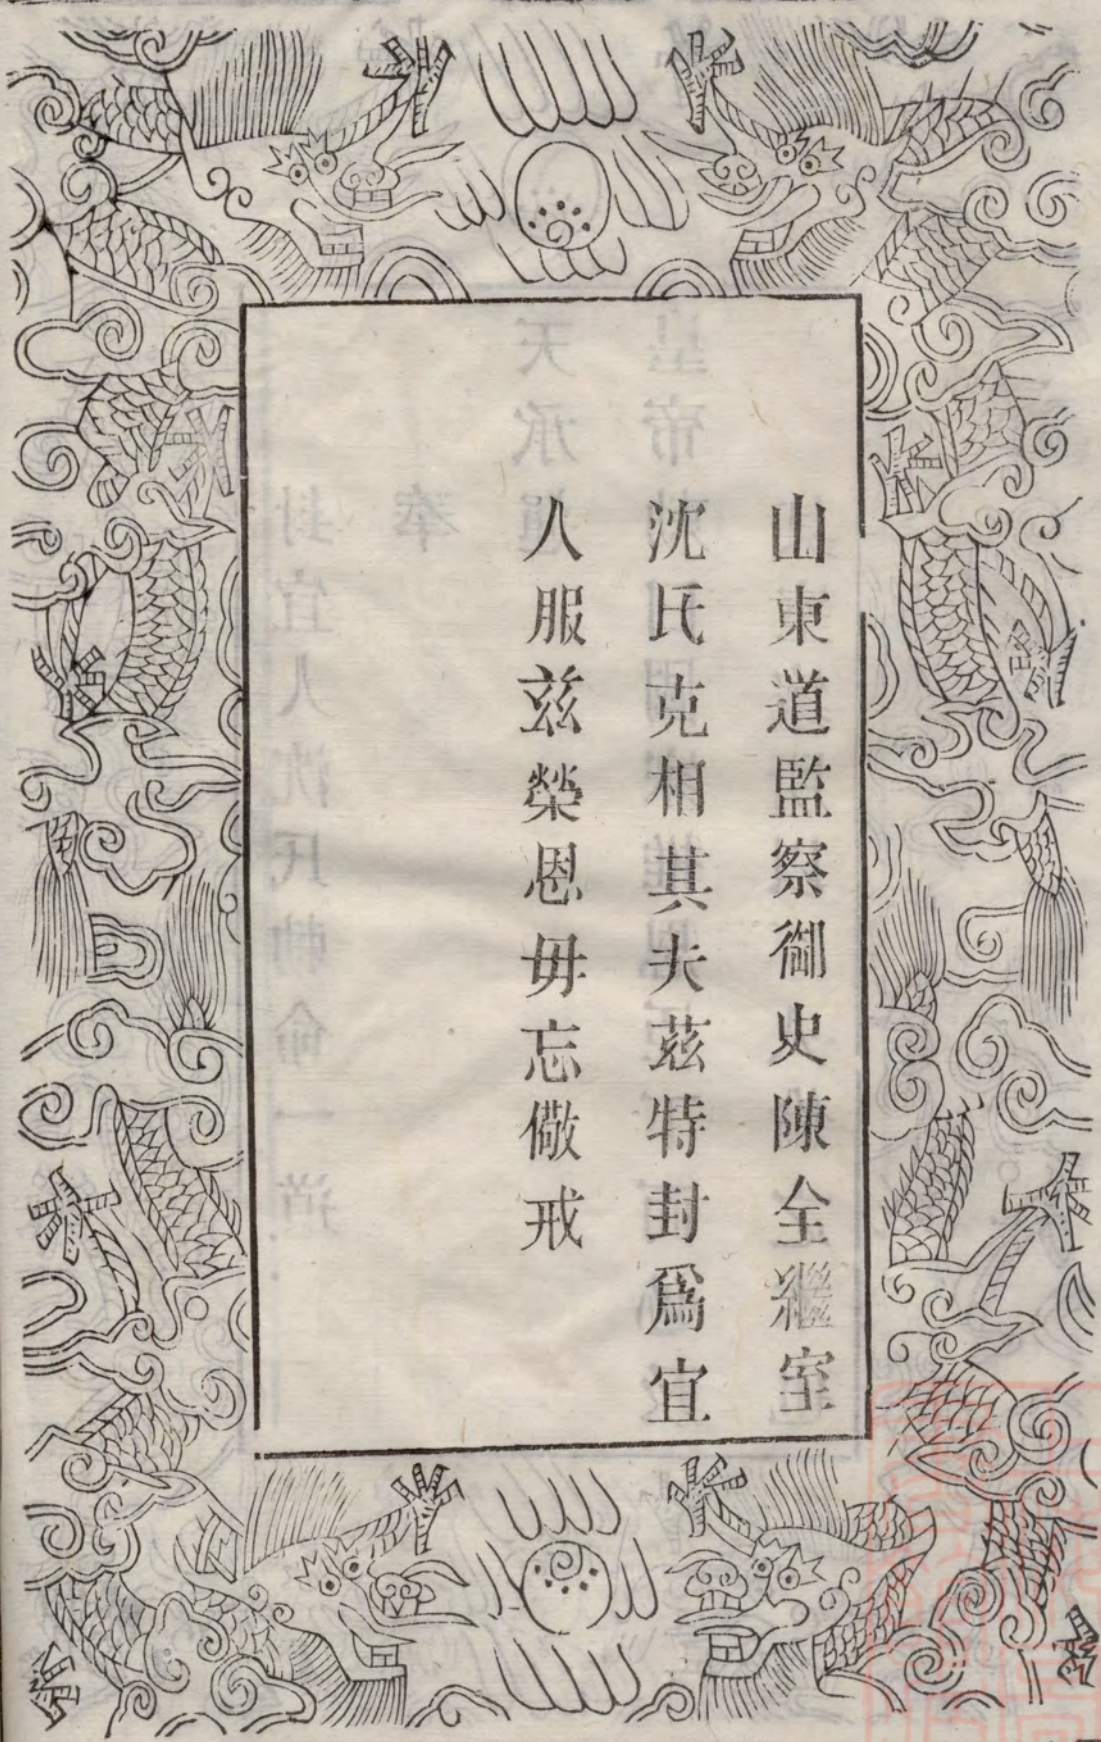 山東道監察御史陳全繼室
沈氏克相其夫茲特封爲宜
人服茲榮恩毋忘儆戒